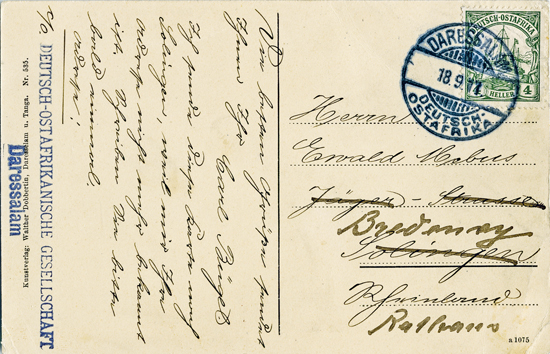 Die besten Grüße sendet
Ihnen Ihr
Carl Bügel
Ich sende diese Karte nach
Solingen, weil mir Ihre
Adresse nicht mehr bekannt
ist. Schreiben Sie bitte
bald einmal.
Adresse:
c/o DEUTSCH-OSTAFRIKANISCHE GESELLSCHAFT
Daressalam
Kunstverlag: Walther Dobbertin, Daressalam u. Tanga. Nr. 535.
DEUTSCH-OSTAFRIKA
4 HELLER 4
DARESSALAM
18.9.12
DEUTSCH-
OSTAFRIKA
Herrn
Ewald Mebus
Jäger - Strasse
Bredeney
Solingen
Rheinland
Rathaus
a 1075